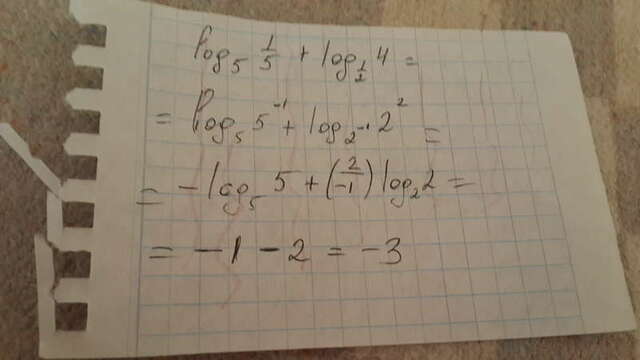 log₅ 1/5 + log_{1/2} 4 =
= log₅ 5⁻¹ + log_{2⁻¹} 2² =
= - log₅ 5 + (2/-1) log₂ 2 =
= -1 - 2 = -3